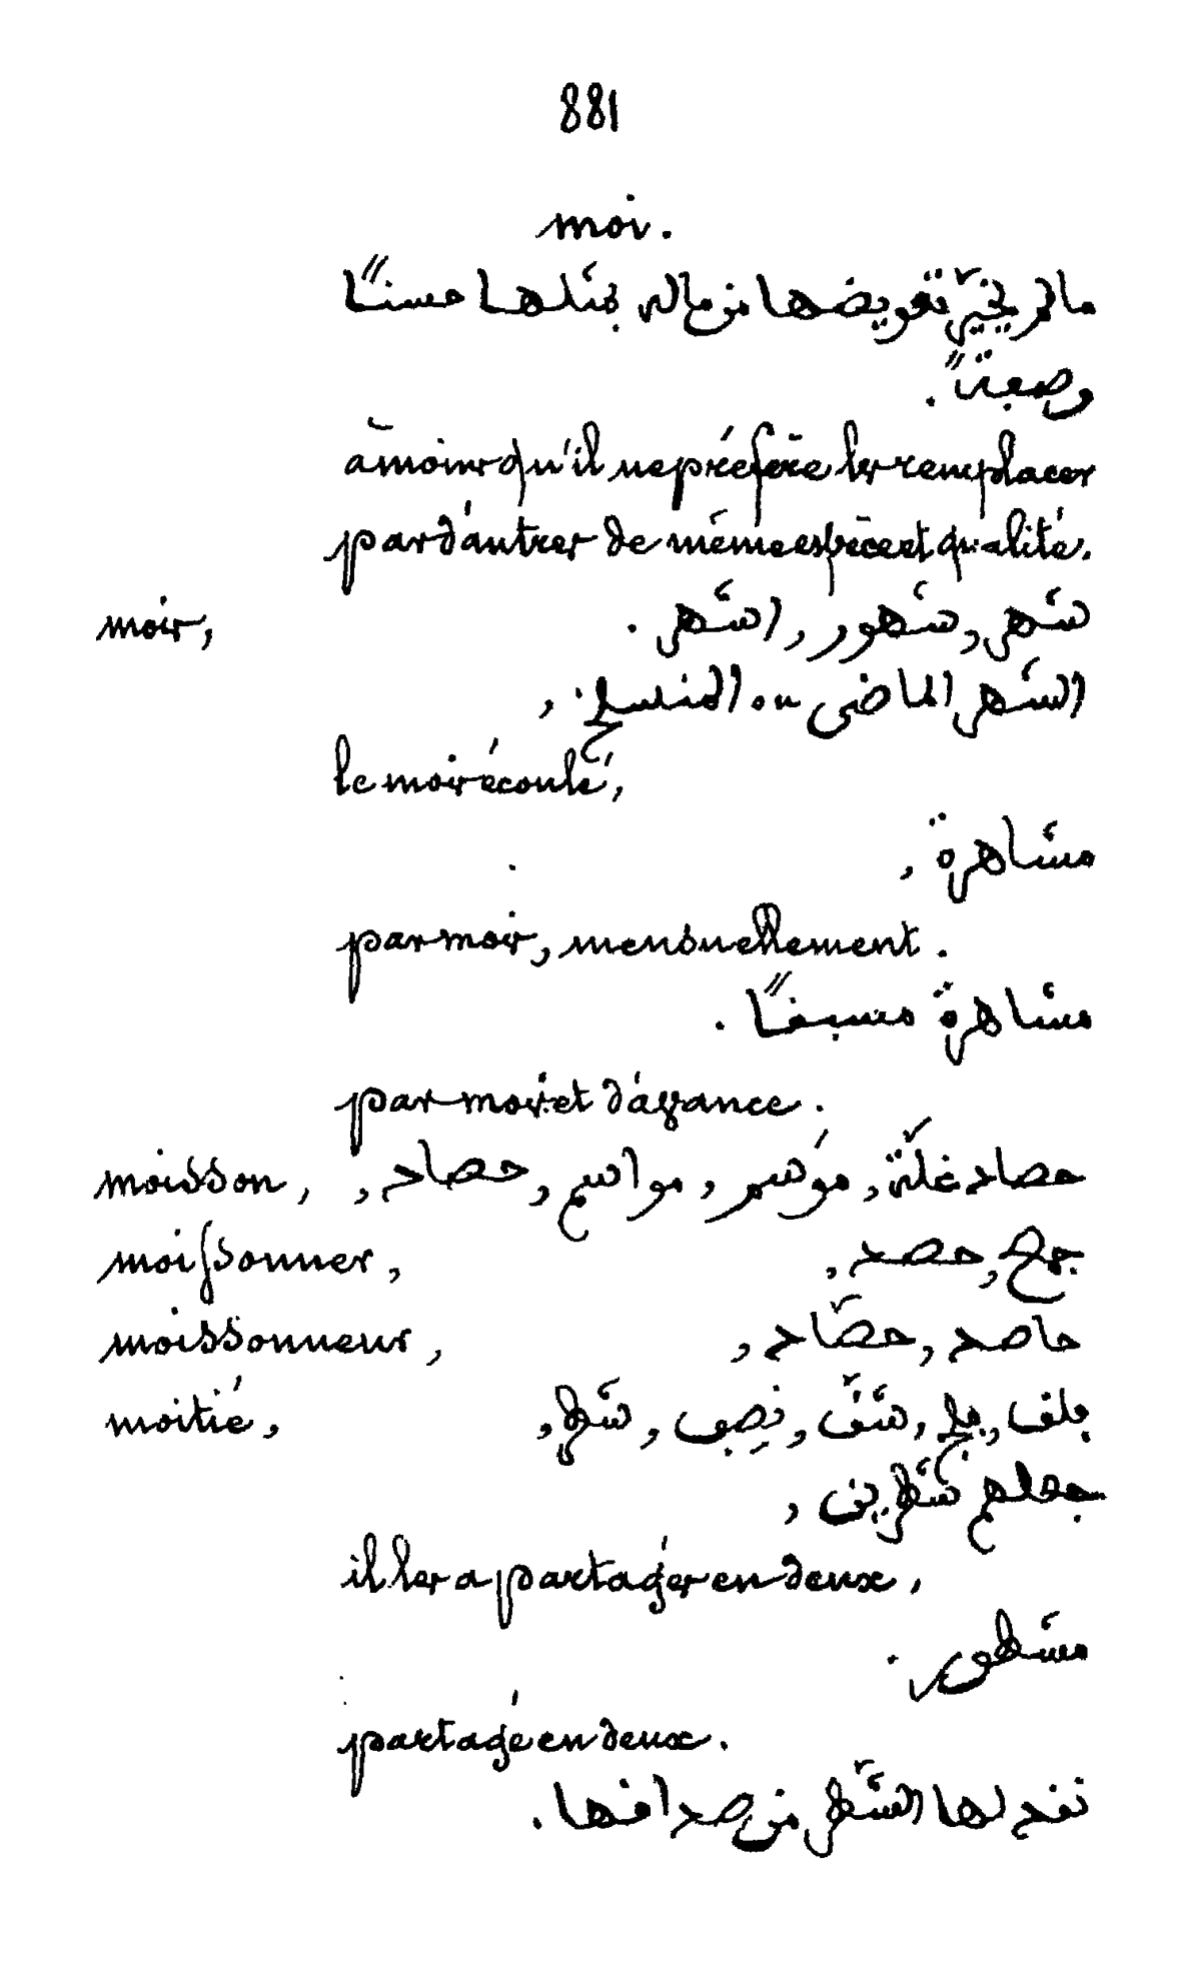 881
moi.
مالم يخيّر تعويضها من ماله بمثلها حسنًا
وصبغةً.
à moins qu'il ne préfère les remplacer
par d'autres de même espèce et qualité.
mois, شهر, شهور, اشهر.
الشهر الماضى ou المنسلخ,
le mois écoulé,
مشاهرة,
par mois, mensuellement.
مشاهرة مسبقًا.
par mois et d'avance.
moisson, حصاد غلّة, موسم, مواسم, حصاد,
moissonner, جمع, حصد,
moissonneur, حاصد, حصّاد,
moitié, شقّ, نِصِف, شطر,
جعلهم شطرين,
il les a partagés en deux,
مشطور.
partagé en deux.
نقد لها الشّطر من صداقها.